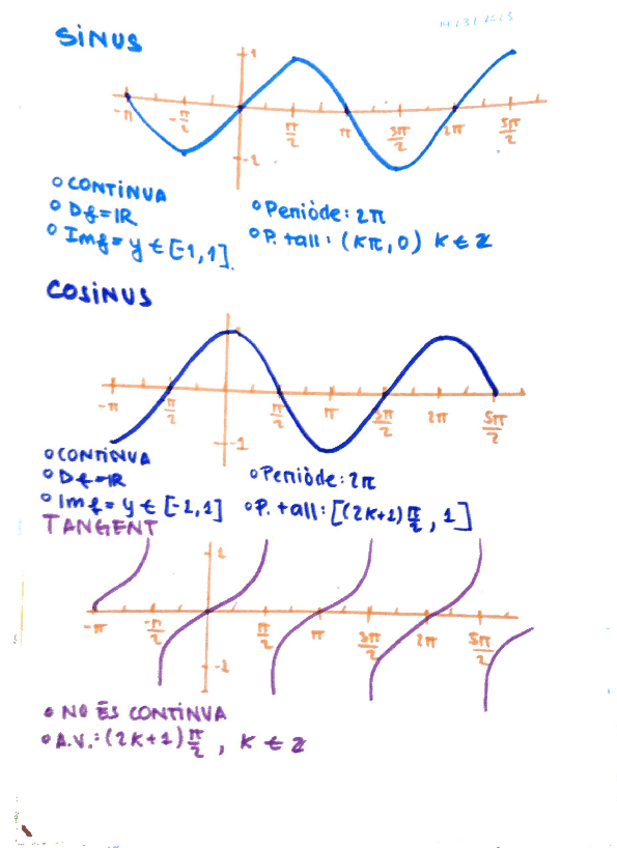 SINUS
1
-π -π/2 π/2 π 3π/2 2π 5π/2
-1
○ CONTÍNUA
○ Df=IR
○ Imf= y ∈ [-1,1].
○ Període: 2π
○ P. tall: (Kπ,0) K ∈ Z
COSINUS
-π π/2 π 3π/2 2π 5π/2
-1
○ CONTÍNUA
○ Df=IR
○ Imf= y ∈ [-1,1]
○ Període: 2π
○ P. tall: [(2K+1)π/2, 1]
TANGENT
1
-π -π/2 π/2 π 3π/2 2π 5π/2
-1
• NO ÉS CONTÍNUA
• A.V.: (2K+1)π/2, K ∈ Z